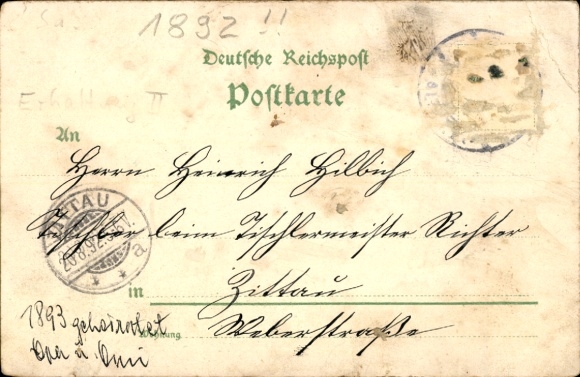 1892 !!
Deutsche Reichspost
Postkarte
Erhaltung II
An
Herrn Heinrich Hilbich
Tischler beim Tischlermeister Richter
in Zittau
Wohnung Weberstraße
ZITTAU
20.8.92.
a
1893 geheiratet
Opa u. Omi